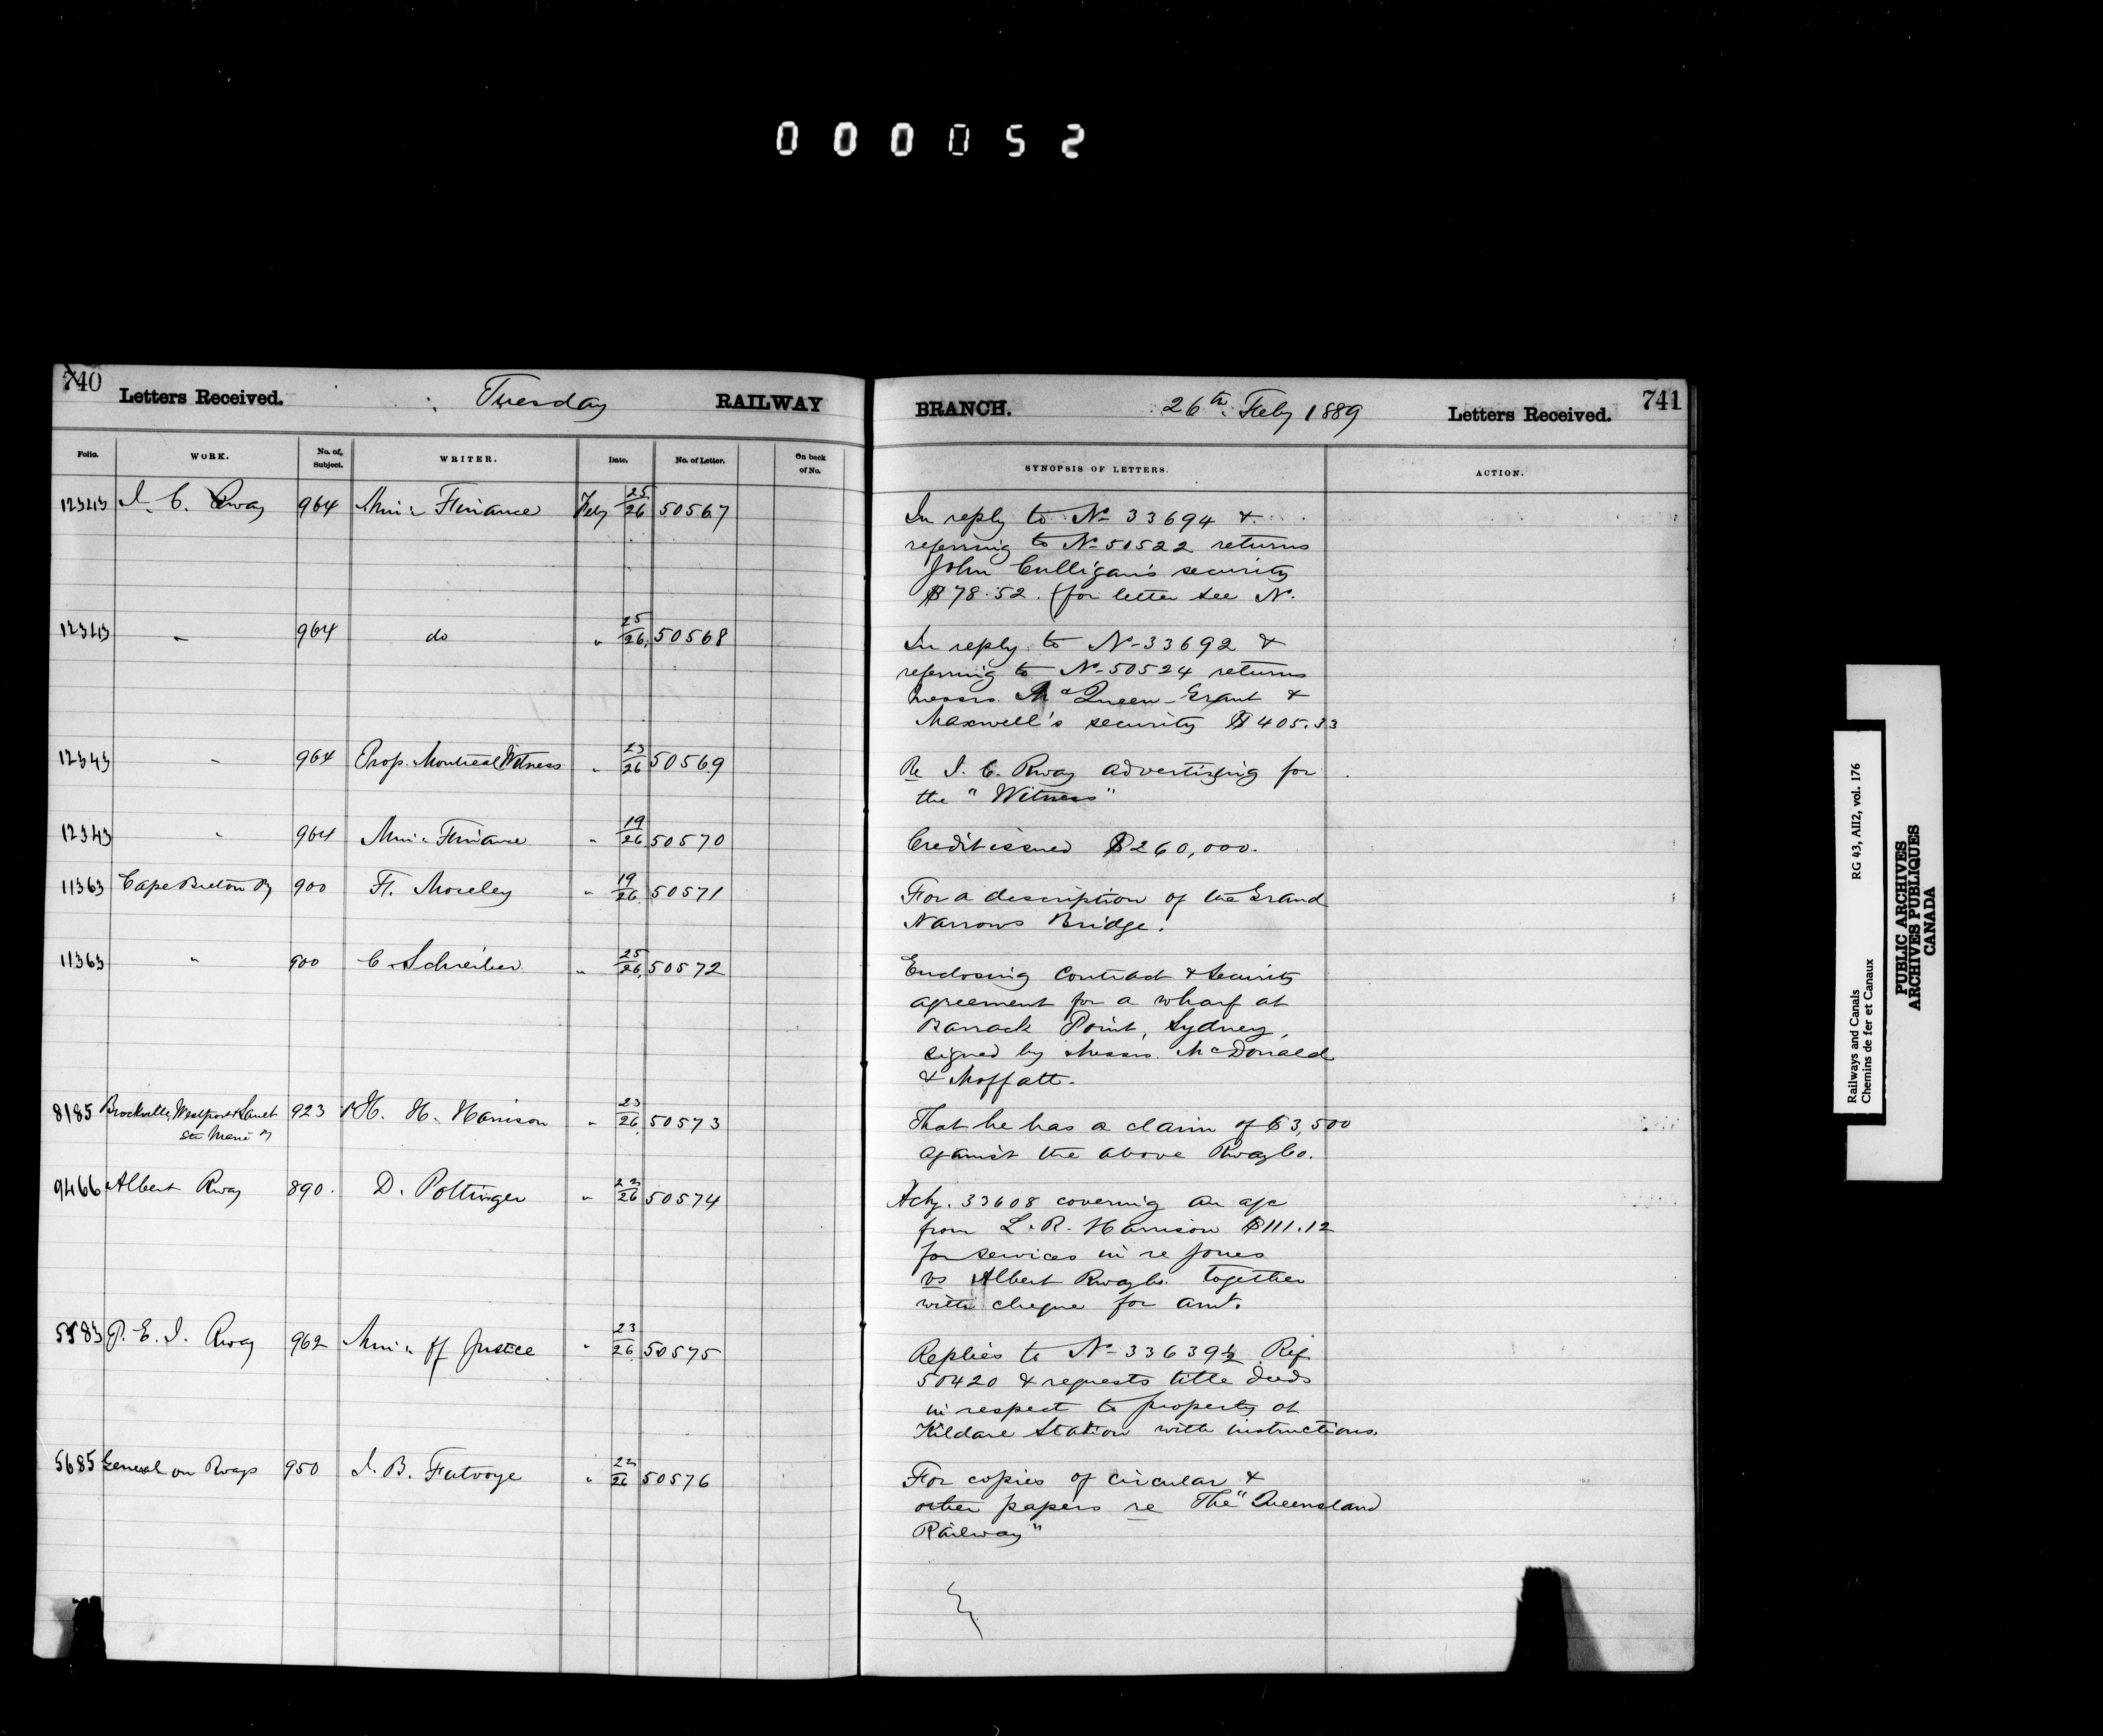 000052
740 Letters Received. Tuesday RAILWAY
BRANCH. 26th Feby 1889 Letters Received. 741
Folio. WORK. No. of Subject. WRITER. Date. No. of Letter. On back of No.
SYNOPSIS OF LETTERS. ACTION.
12343 I. C. Rway 964 Min: Finance Feby 25/26 50567
In reply to No 33694 &
referring to No 50522 returns
John Culligan's security
$78.52. (for letter see No.
12343 " 964 do " 25/26 50568
In reply to No 33692 &
referring to No 50524 returns
Messrs. McQueen Grant &
Maxwell's security $405.33
12343 " 964 Prop. Montreal Witness " 23/26 50569
Re I. C. Rway advertizing for
the "Witness"
12343 " 964 Min: Finance " 19/26 50570
Credit issued $260,000.
11363 Cape Breton Ry 900 F. Moseley " 19/26 50571
For a description of the Grand
Narrows Bridge.
11363 " 900 C Schreiber " 25/26 50572
Enclosing Contract & Security
agreement for a wharf at
Barrack Point, Sydney,
signed by Messrs. McDonald
& Moffatt.
8185 Brockville, Westport & Sault
Ste Marie Ry 923 H. H. Harrison " 23/26 50573
That he has a claim of $3,500
against the above Rway Co.
9466 Albert Rway 890. D. Pottinger " 22/26 50574
Ackg. 33608 covering an a/c
from L. R. Harrison $111.12
for services in re Jones
vs Albert Rway Co. together
with cheque for amt.
5583 P. E. I. Rway 962 Min: of Justice " 23/26 50575
Replies to No 33639½ Ref
50420 & requests title deeds
in respect to property at
Kildare Station with instructions.
5685 General on Rways 950 I. B. Futvoye " 22/26 50576
For copies of circular &
other papers re The "Queensland
Railway"
Railways and Canals RG 43, AII2, vol. 176
Chemins de fer et Canaux
PUBLIC ARCHIVES
ARCHIVES PUBLIQUES
CANADA